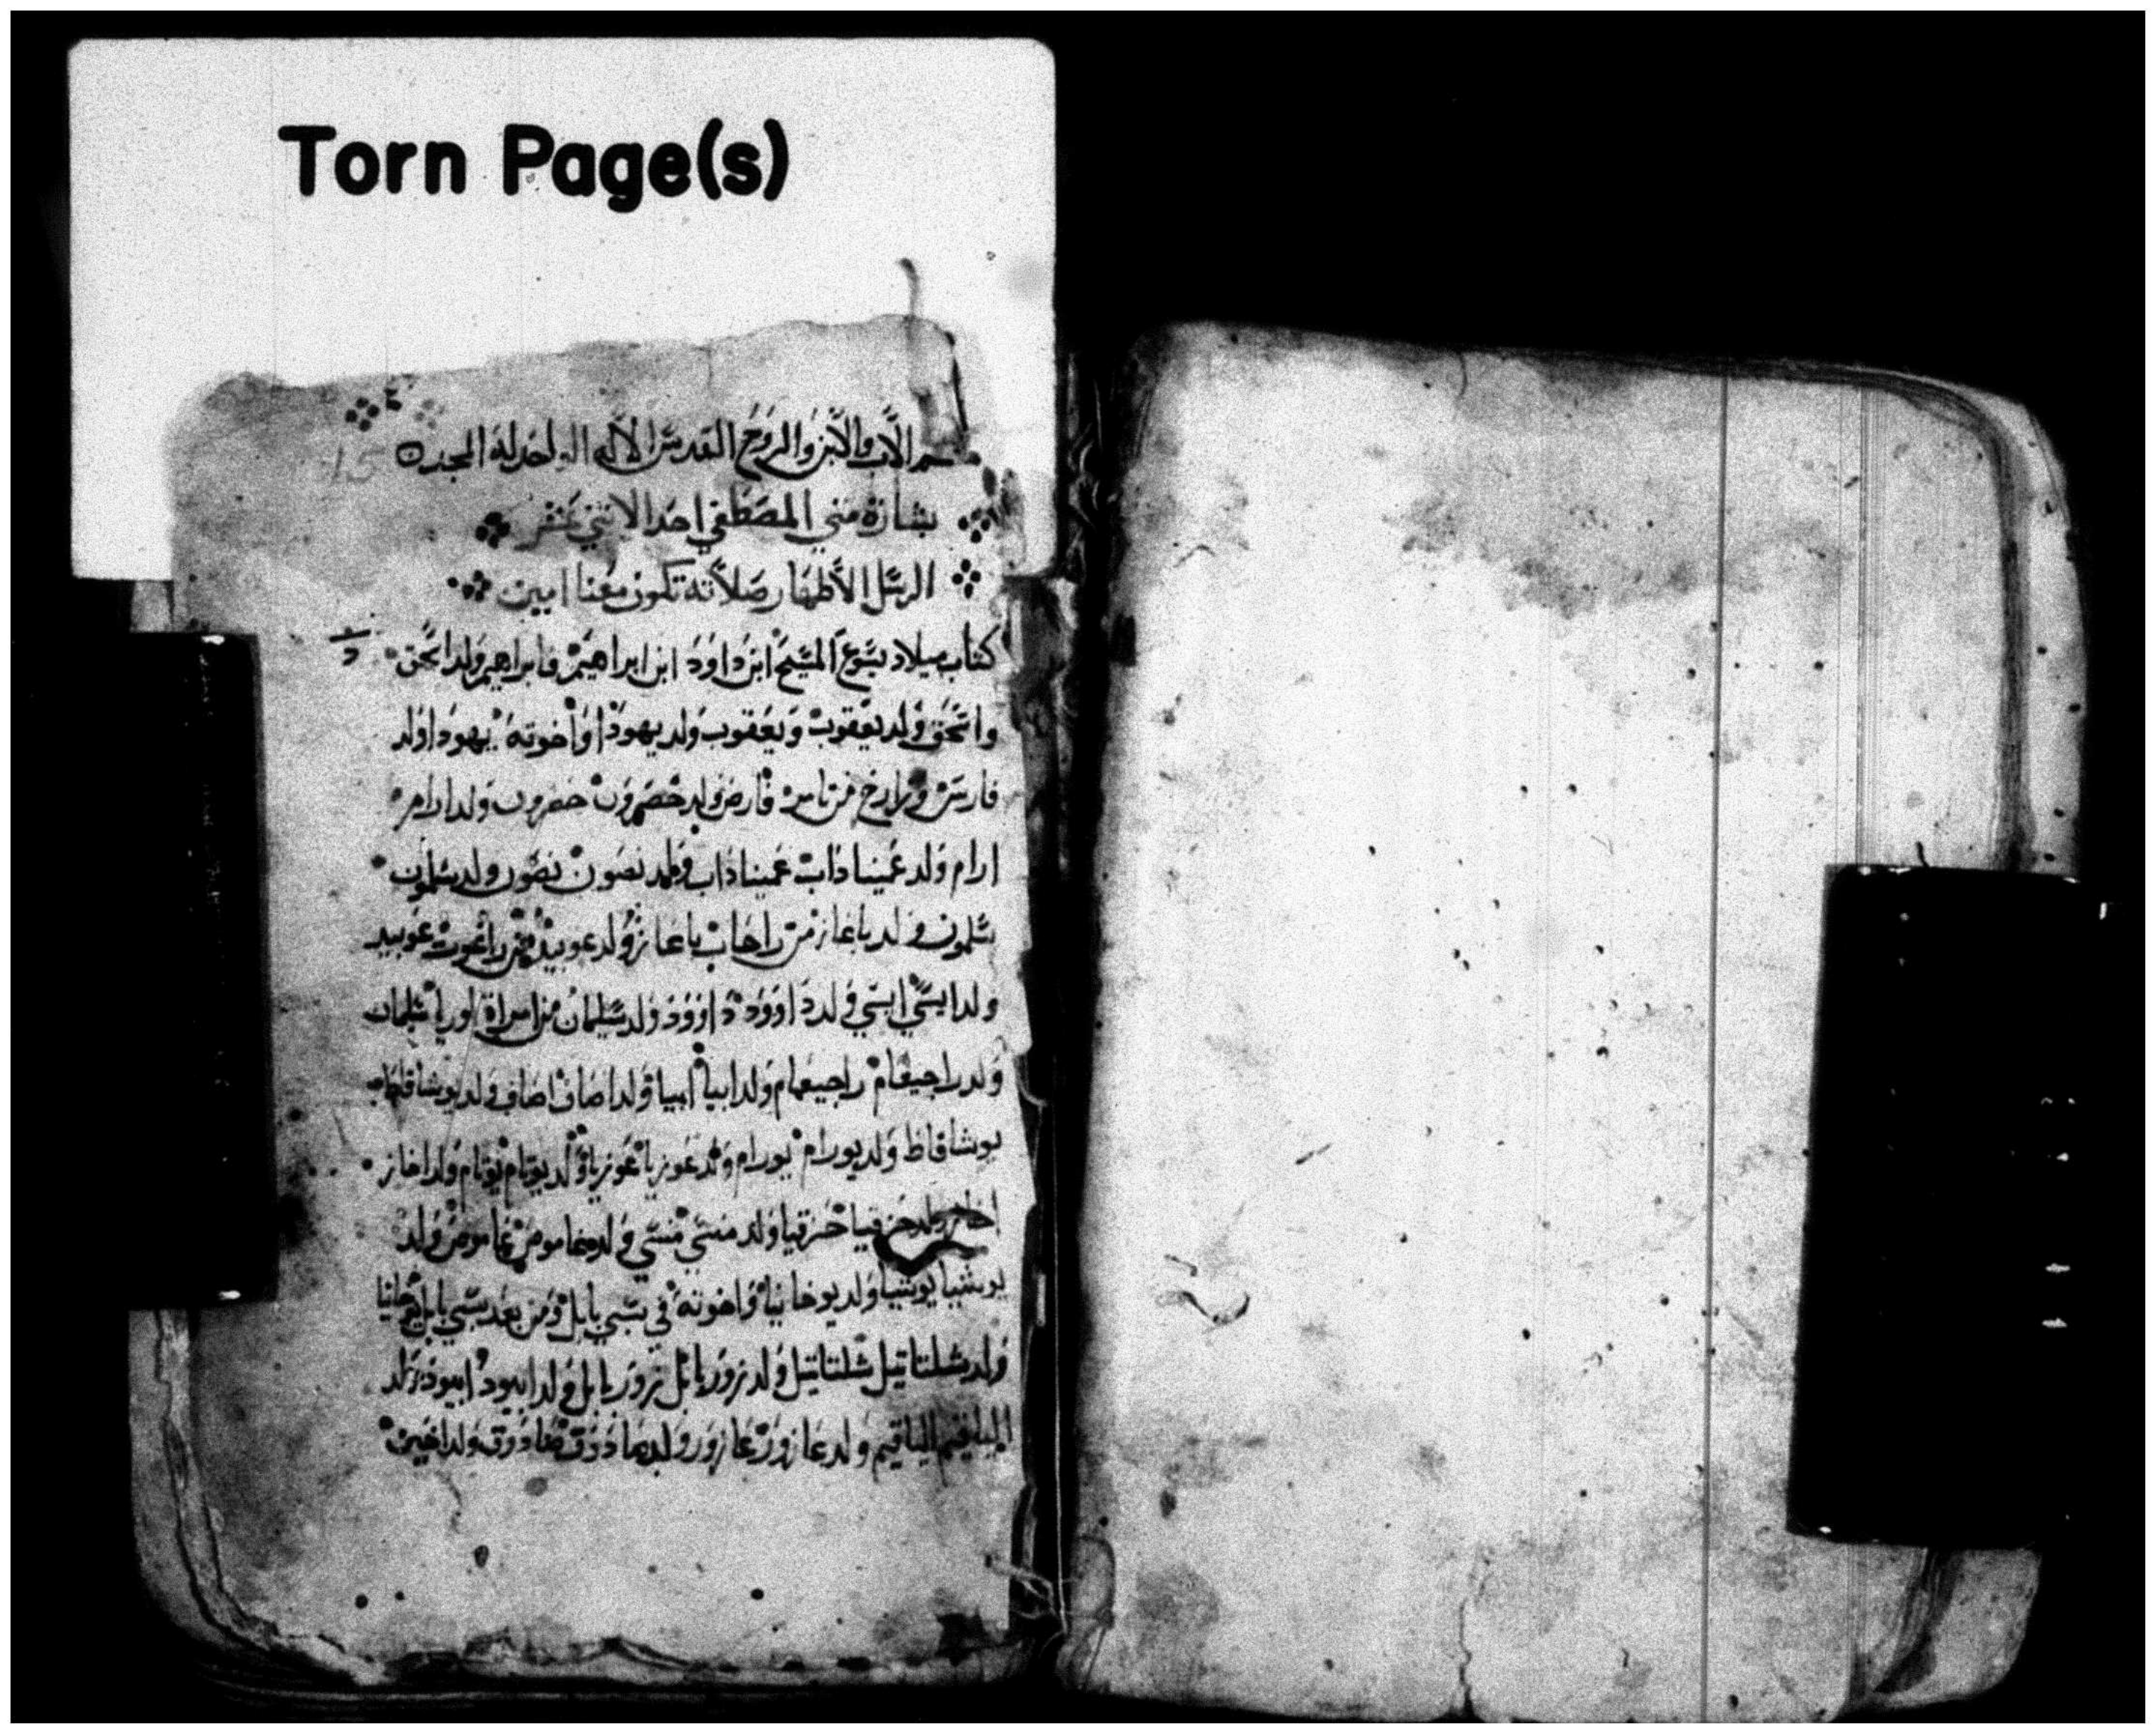 Torn Page(s)
الاب والابن والروح القدس الاله الواحد له المجد
15
بشارة متي المصطفي احد الاثني عشر
الرسل الاطهار صلاته تكون معنا امين
كتاب ميلاد يسوع المسيح ابن داوود ابن ابراهيم فابراهيم ولد اسحق
واسحق ولد يعقوب ويعقوب ولد يهودا واخوته يهودا ولد
فارص وزارخ من تامر فارص ولد حصرون حصرون ولد ارام
ارام ولد عمينا داب عمينا داب ولد نصون نصون ولد سلمون
سلمون ولد باعاز من راحاب باعاز ولد عوبيد من راعوت عوبيد
ولد ايسي ايسي ولد داوود داوود ولد سليمان من امراة اوريا سليمان
ولد راجيعام راجيعام ولد ابيا ابيا ولد اصاف اصاف ولد
يوشافاط ولد يورام يورام ولد عوزيا عوزيا ولد يوتام يوتام ولد اخاز
اخاز ولد حزقيا حزقيا ولد منسي منسي ولد عاموص عاموص ولد
يوشيا يوشيا ولد يوخانيا واخوته في سبي بابل ومن بعد سبي بابل
ولد شلتاتيل شلتاتيل ولد زوربابل زوربابل ولد ابيود ابيود ولد
الياقيم الياقيم ولد عازور عازور ولد صادوق ولد اخين